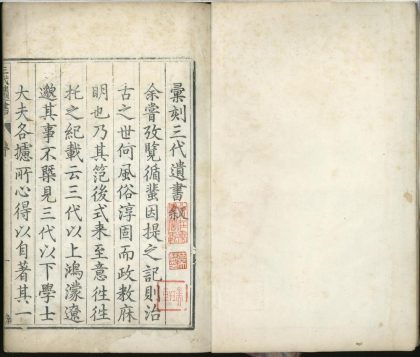 彙刻三代遺書敘
余嘗攷覽循蜚因提之記則治
古之世何風俗淳固而政教庥
明也乃其笵後式来至意徃徃
托之紀載云三代以上鴻濛遼
邈其事不槩見三代以下學士
大夫各攄所心得以自著其一
三代遺書